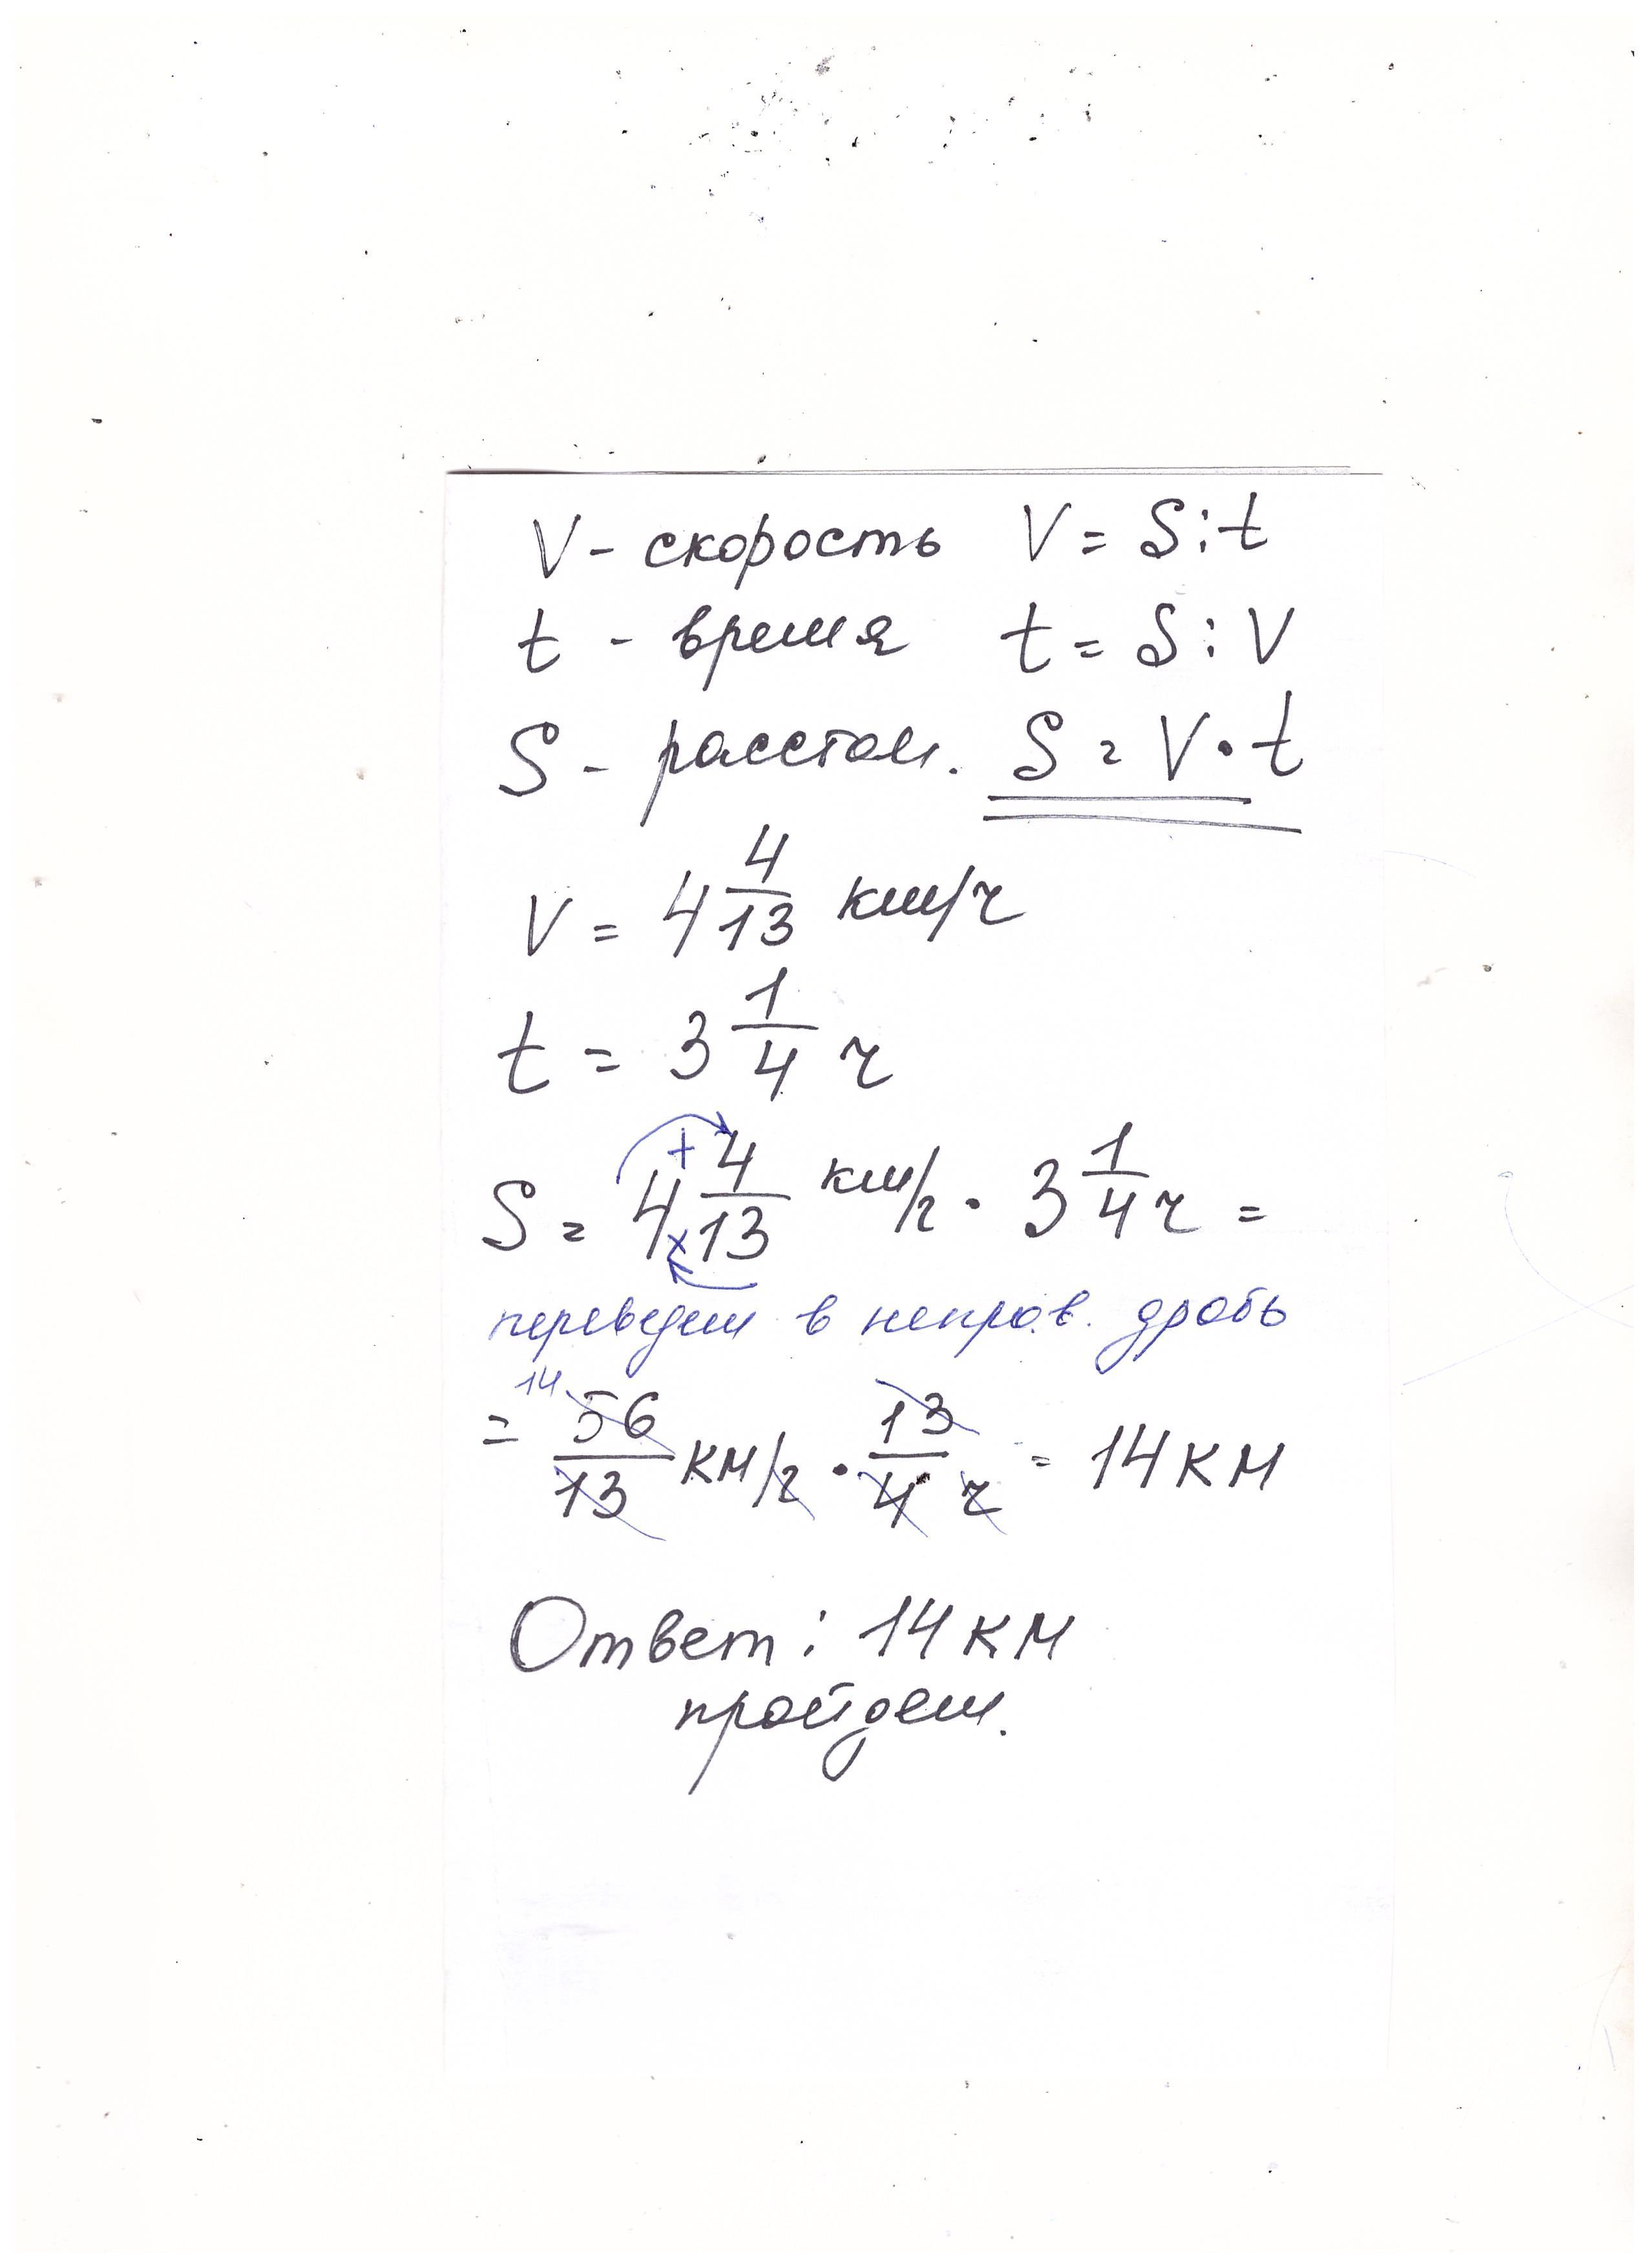 V - скорость V = S : t
t - время t = S : V
S - расстоян. S = V · t
V = 4 4/13 км/ч
t = 3 1/4 ч
S = 4 + 4/13 км/ч · 3 1/4 ч =
×
переведем в неправ. дробь
14
= 56/13 км/ч · 13/4 ч = 14 км
Ответ: 14 км
пройдем.